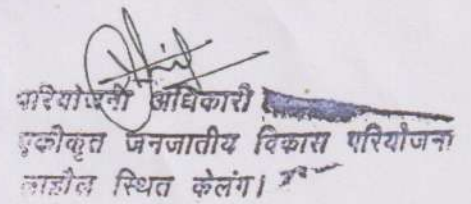 परियोजना अधिकारी
एकीकृत जनजातीय विकास परियोजना
लाहौल स्थित केलंग।